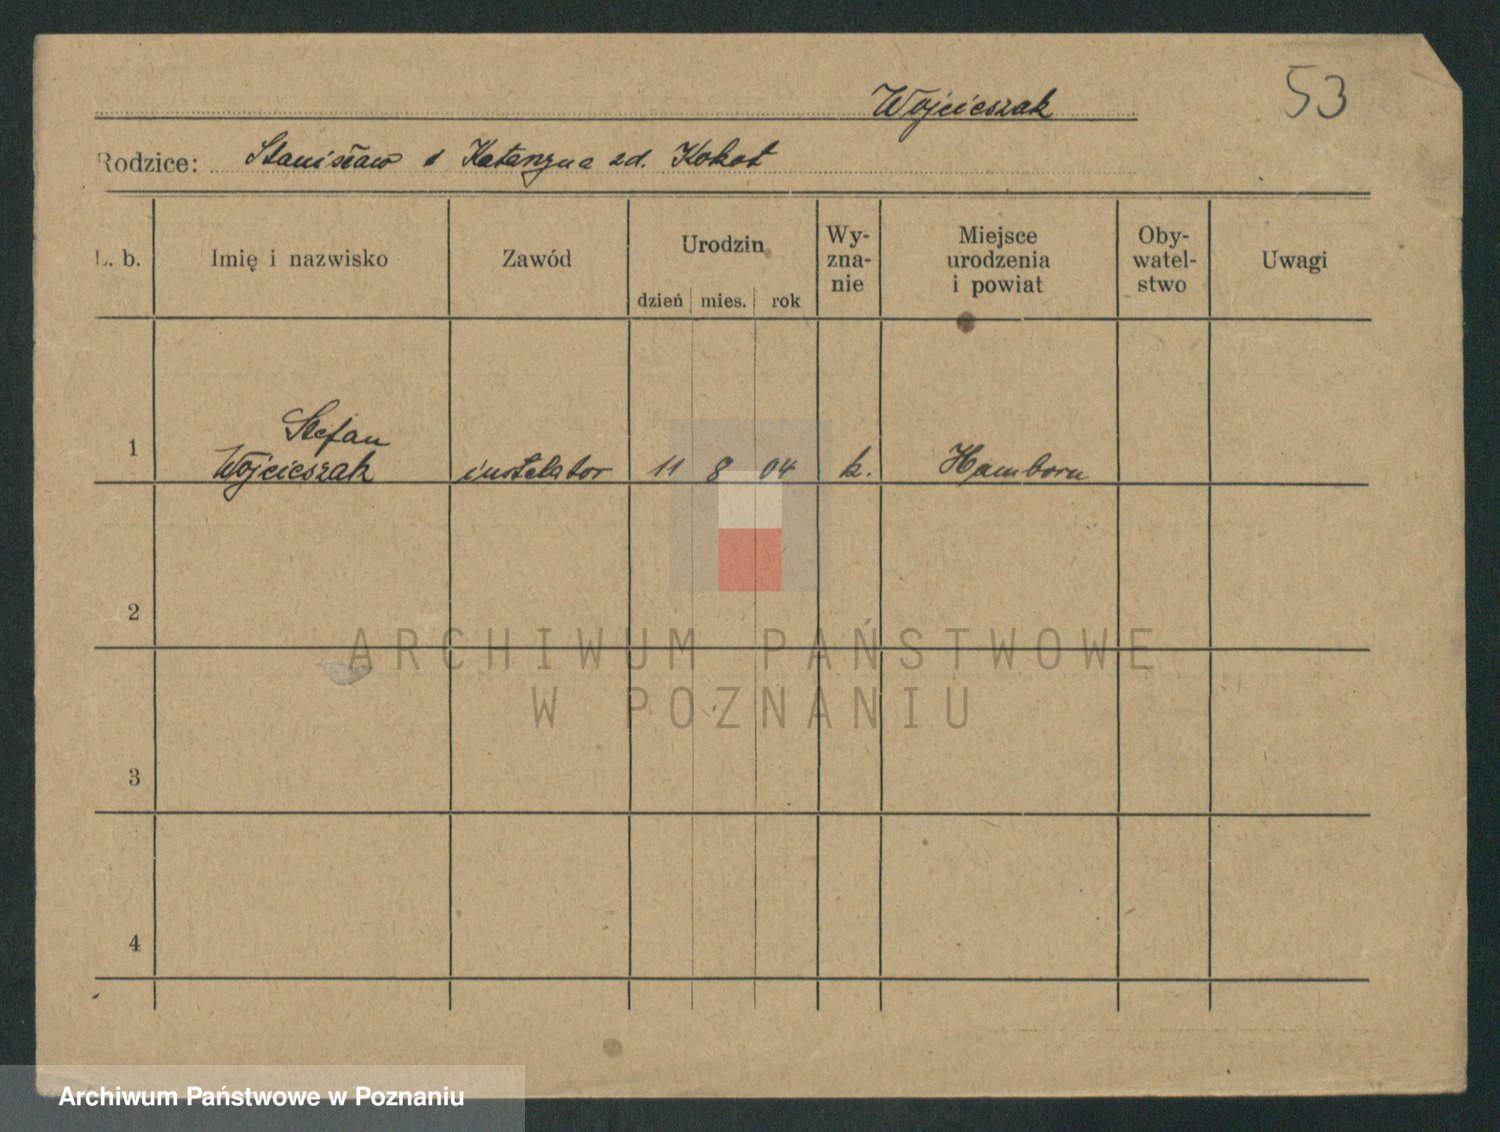 53
Wojcieszak
Rodzice: Stanisław i Katarzyna zd. Kokot
L. b.
Imię i nazwisko
Zawód
Urodzin
dzień mies. rok
Wy-
zna-
nie
Miejsce
urodzenia
i powiat
Oby-
watel-
stwo
Uwagi
Stefan
1 Wojcieszak instelator 11 8 04 k. Hamborn
2
3
4
ARCHIWUM PAŃSTWOWE
W POZNANIU
Archiwum Państwowe w Poznaniu